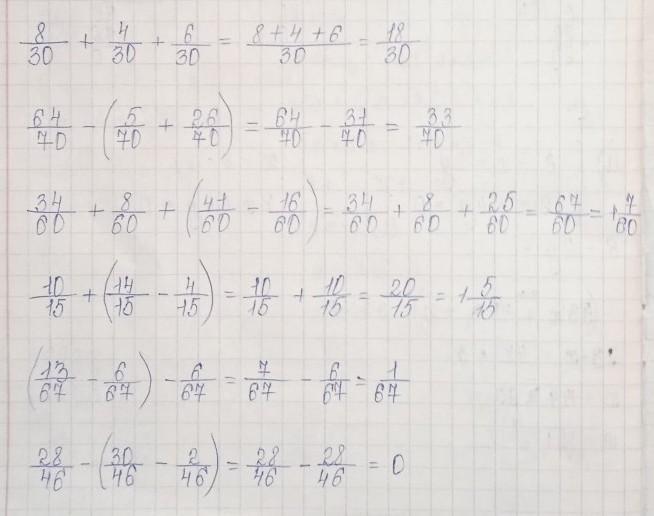 8/30 + 4/30 + 6/30 = 8+4+6/30 = 18/30
64/70 - (5/70 + 26/70) = 64/70 - 31/70 = 33/70
34/60 + 8/60 + (41/60 - 16/60) = 34/60 + 8/60 + 25/60 = 67/60 = 1 7/60
10/15 + (14/15 - 4/15) = 10/15 + 10/15 = 20/15 = 1 5/15
(13/67 - 6/67) - 6/67 = 7/67 - 6/67 = 1/67
28/46 - (30/46 - 2/46) = 28/46 - 28/46 = 0